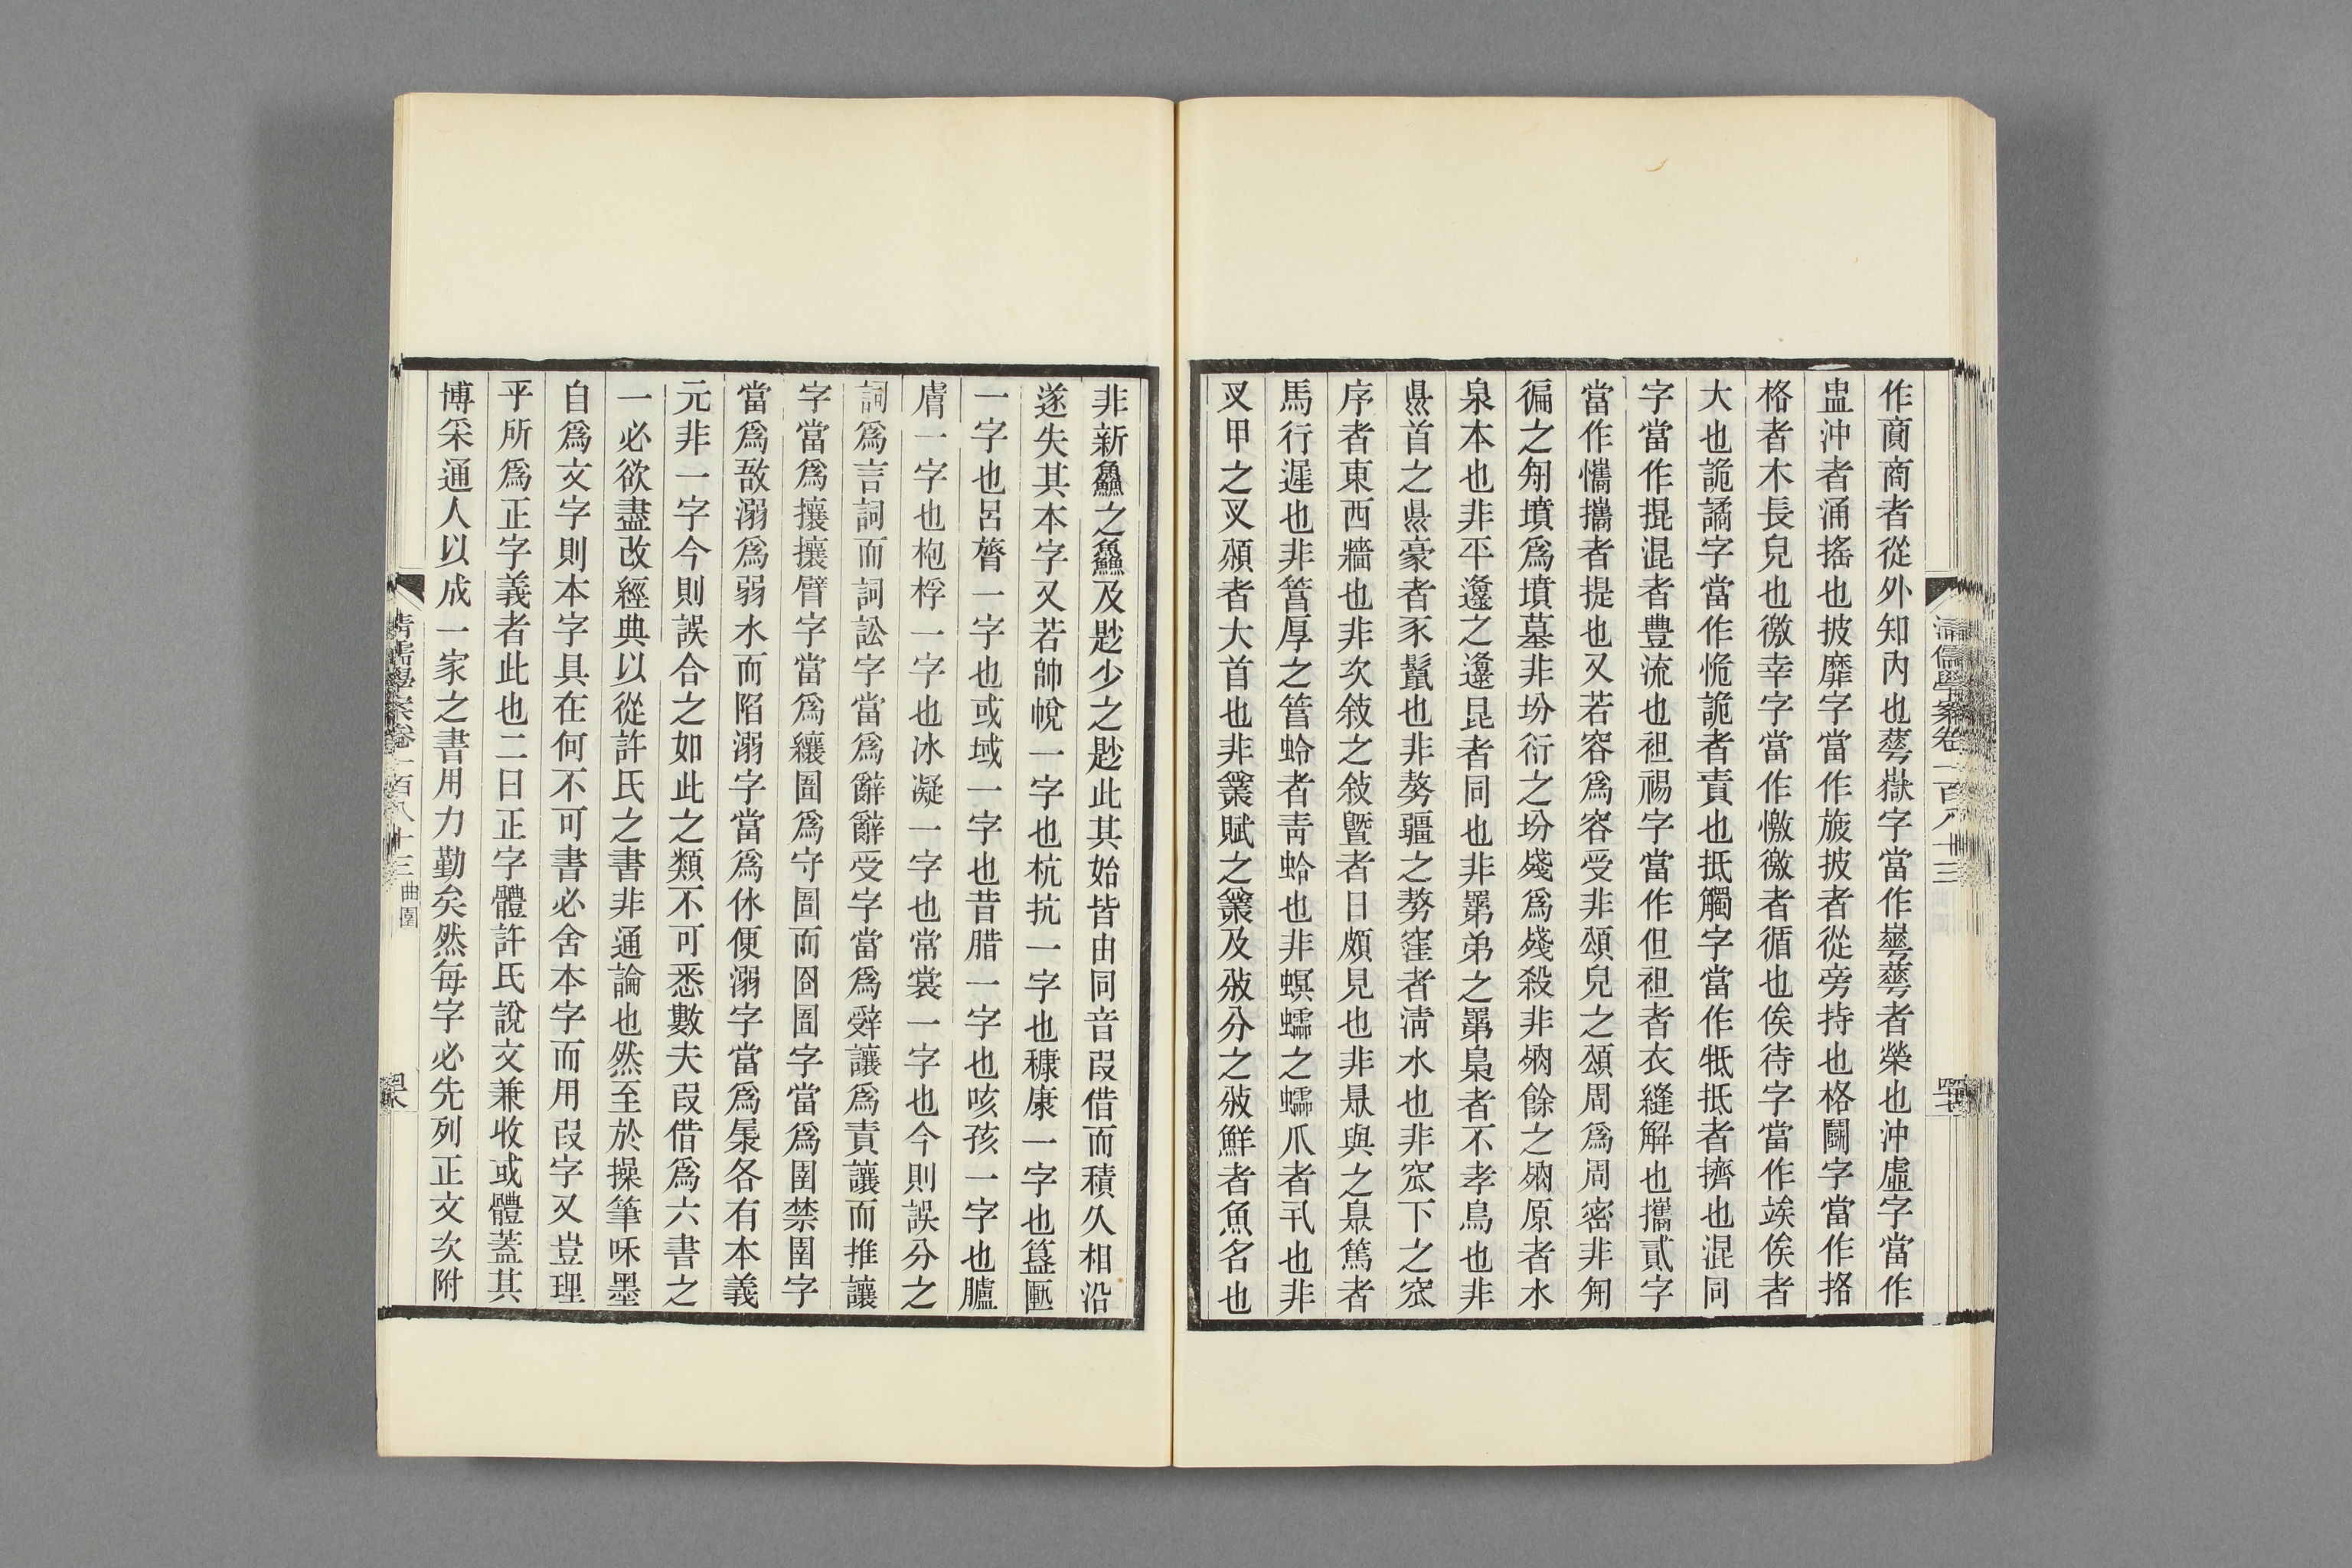 作㕯商者從外知內也蕚嶽字當作㟧蕚者榮也沖虛字當作
盅沖者涌搖也披靡字當作旇披者從旁持也格鬭字當作挌
格者木長皃也徼幸字當作憿徼者循也俟待字當作竢俟者
大也詭譎字當作恑詭者責也抵觸字當作牴抵者擠也混同
字當作掍混者豐流也袒裼字當作但袒者衣縫解也攜貳字
當作㦻攜者提也又若容爲容受非頌皃之頌周爲周密非匊
徧之匊墳爲墳墓非坋衍之坋殘爲殘殺非㱚餘之㱚原者水
泉本也非平邍之邍昆者同也非罤弟之罤梟者不孝鳥也非
首之豪者豕鬣也非勥疆之勥窪者淸水也非窊下之窊
序者東西牆也非次敍之敍曁者日頗見也非臮與之臮篤者
馬行遲也非䈞厚之䈞蛉者靑蛉也非螟蠕之蠕爪者丮也非
叉甲之叉頒者大首也非䉵賦之䉵及攽分之攽鮮者魚名也
淸儒學案卷一百八十三
非新鱻之鱻及尟少之尟此其始皆由同音叚借而積久相沿
遂失其本字又若帥帨一字也杭抗一字也穅康一字也簋匭
一字也呂膂一字也或域一字也昔腊一字也咳孩一字也臚
膚一字也枹桴一字也冰凝一字也常裳一字也今則誤分之
詞爲言詞而詞訟字當爲辭辭受字當爲辤讓爲責讓而推讓
字當爲攘攘臂字當爲纕圄爲守圄而囹圄字當爲圉禁圉字
當爲敔溺爲弱水而陷溺字當爲㲻便溺字當爲㞙各有本義
元非一字今則誤合之如此之類不可悉數夫叚借爲六書之
一必欲盡改經典以從許氏之書非通論也然至於操筆和墨
自爲文字則本字具在何不可書必舍本字而用叚字又豈理
乎所爲正字義者此也二曰正字體許氏說文兼收或體蓋其
博采通人以成一家之書用力勤矣然每字必先列正文次附
淸儒學案卷一百八十三 曲園